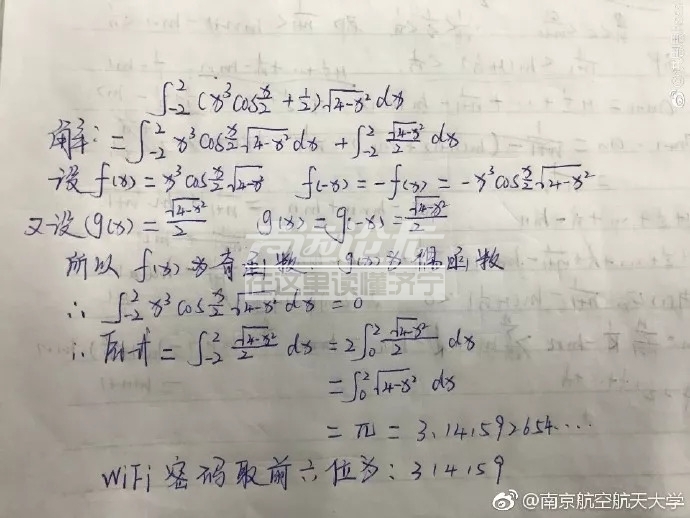 ∫₋₂² (x³cos x/2 + 1/2)√4-x² dx
解:=∫₋₂² x³cos x/2 √4-x² dx + ∫₋₂² √4-x²/2 dx
设 f(x)=x³cos x/2 √4-x² f(-x)=-f(x)=-x³cos x/2 √4-x²
又设(g(x)=√4-x²/2 g(x)=g(-x)=√4-x²/2
所以 f(x)为奇函数. g(x)为偶函数
∴ ∫₋₂² x³cos x/2 √4-x² dx=0
∴ 原式=∫₋₂² √4-x²/2 dx=2∫₀² √4-x²/2 dx
=∫₀² √4-x² dx
=π=3.141592654....
WiFi密码取前六位为:314159
在这里读懂济宁
@南京航空航天大学